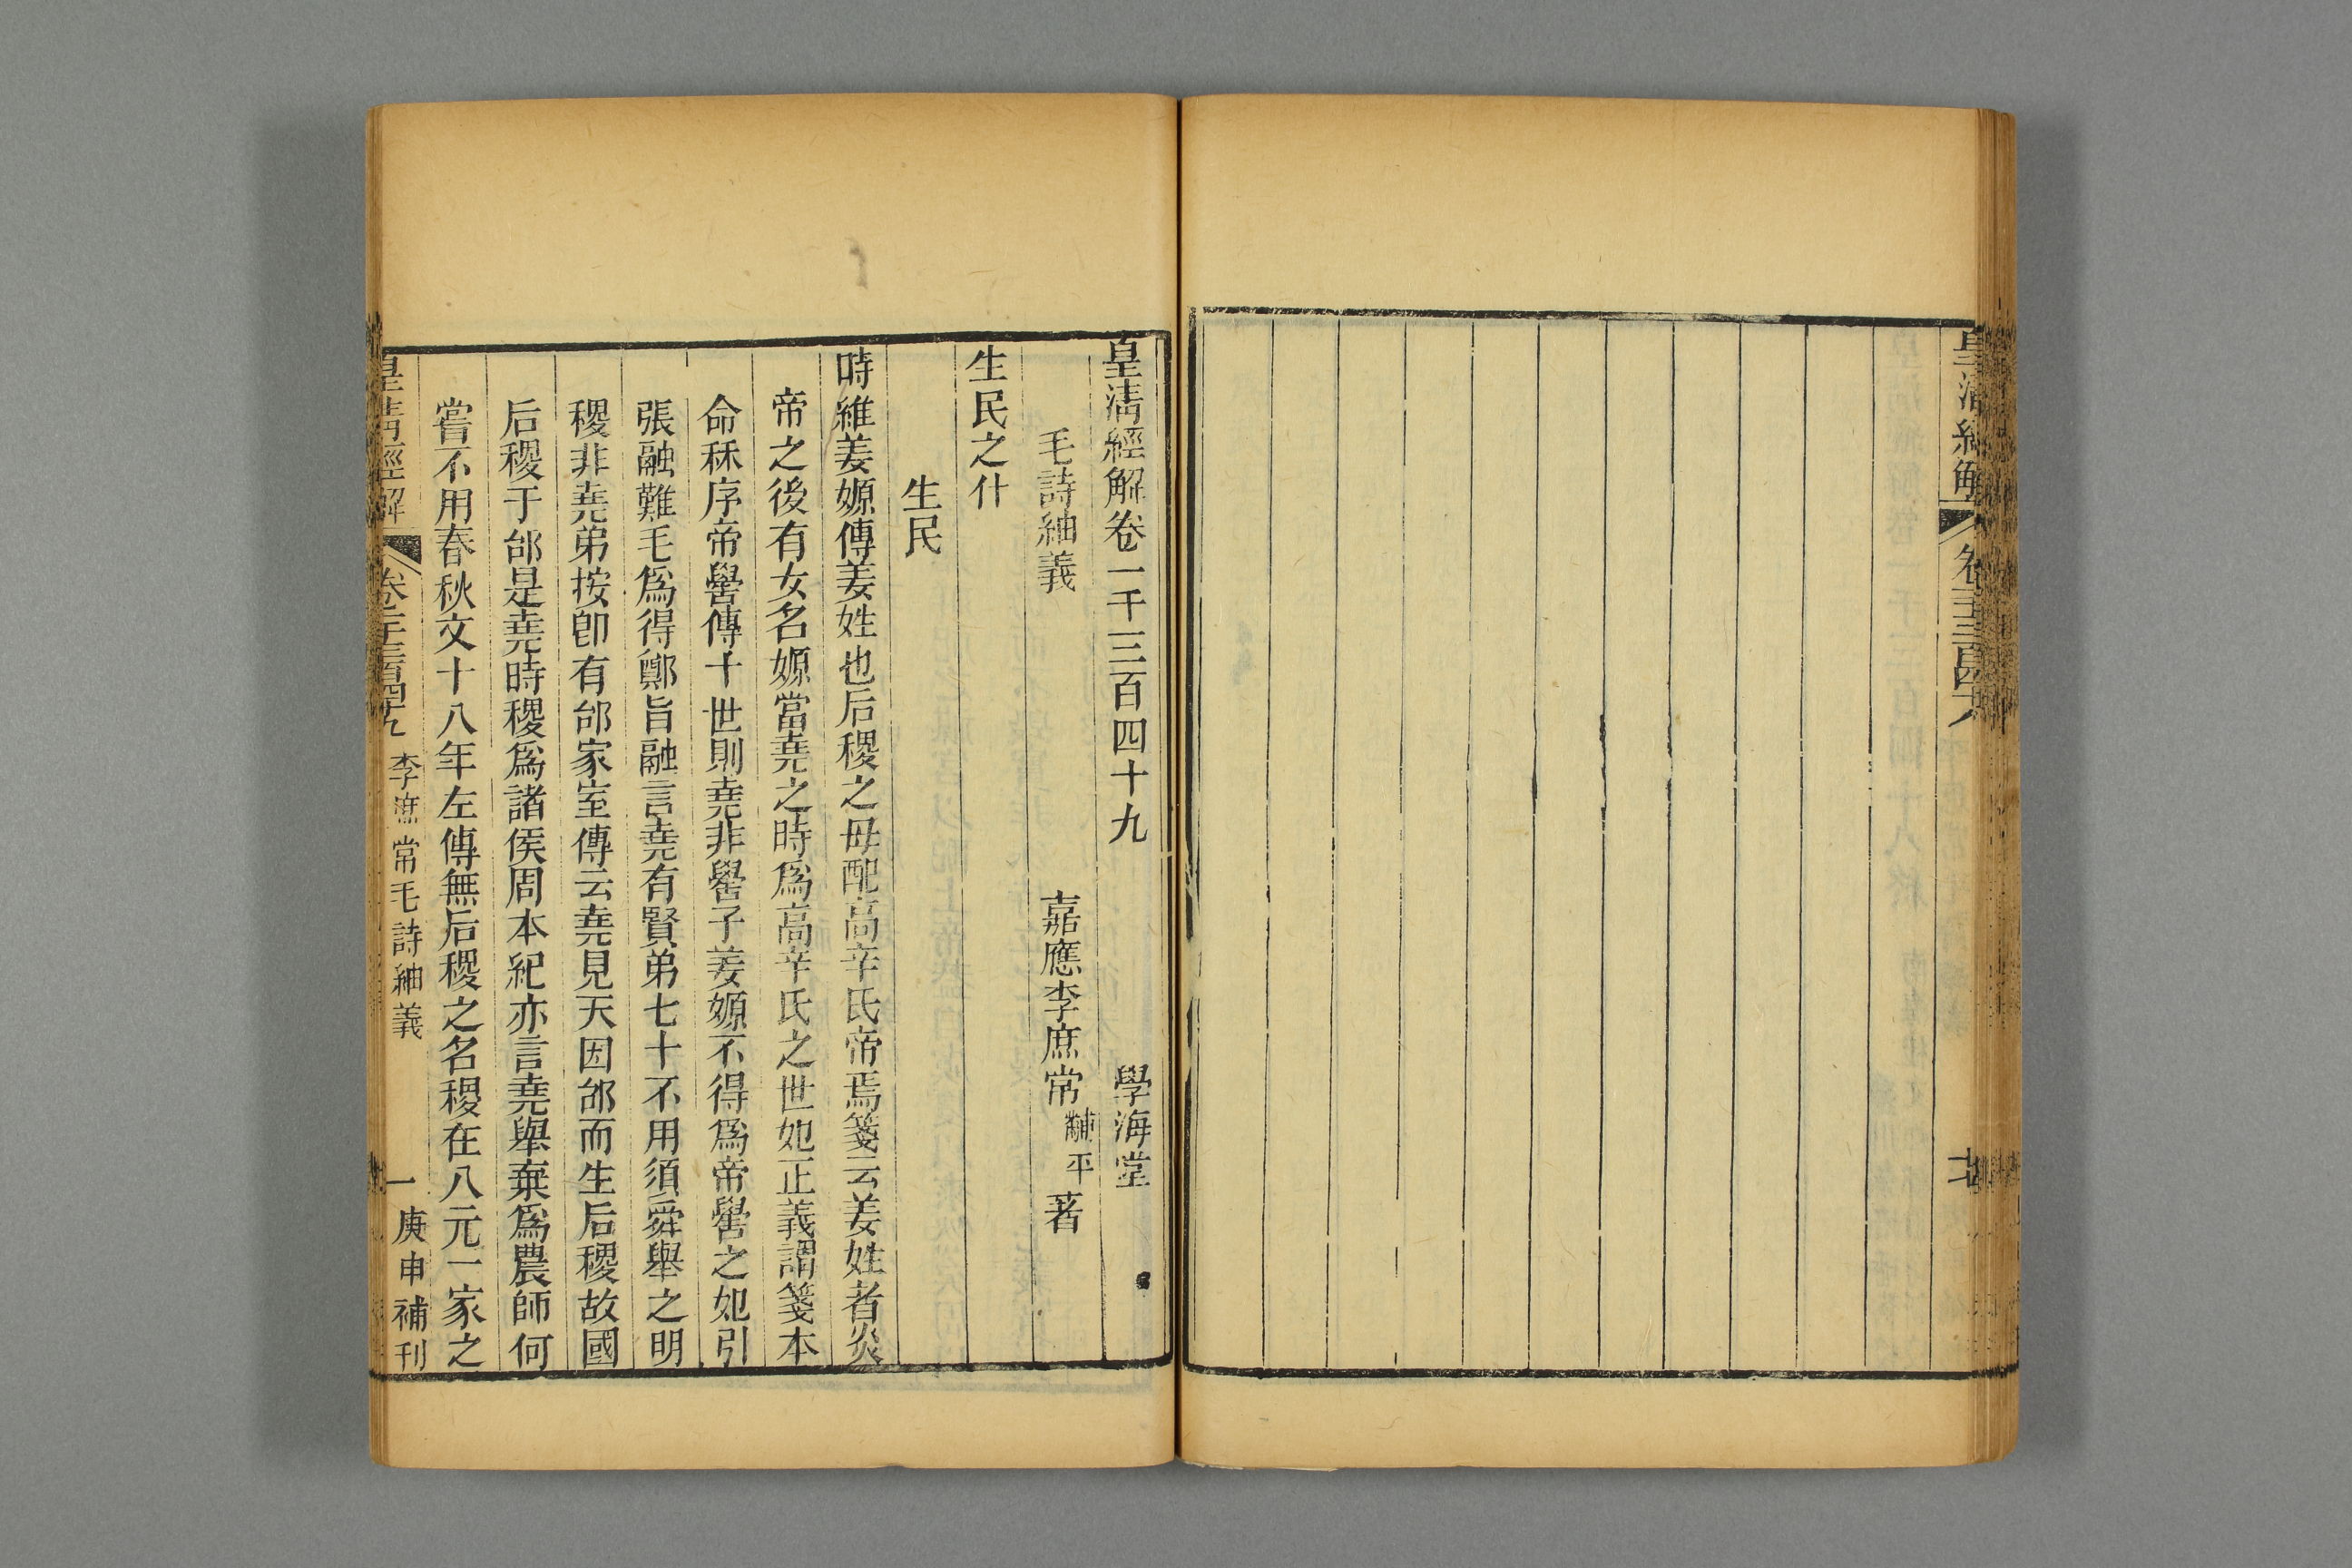 皇清經解
卷一千三百四十八
皇清經解卷一千三百四十九
學海堂
毛詩紬義
嘉應李庶常黼平著
生民之什
生民
時維姜嫄傳姜姓也后稷之母配高辛氏帝焉箋云姜姓者炎
帝之後有女名嫄當堯之時爲高辛氏之世妃正義謂箋本
命秝序帝嚳傳十世則堯非嚳子姜嫄不得爲帝嚳之妃引
張融難毛爲得鄭旨融言堯有賢弟七十不用須舜舉之明
稷非堯弟按卽有邰家室傳云堯見天因邰而生后稷故國
后稷于邰是堯時稷爲諸侯周本紀亦言堯舉棄爲農師何
嘗不用春秋文十八年左傳無后稷之名稷在八元一家之
皇清經解
卷一千三百四十九
李庶常毛詩紬義
一
庚申補刊